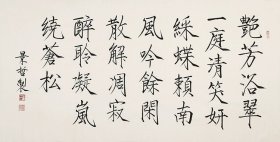 艷芳浴翠
一庭清笑妍
綵蝶賴南
風吟餘閑
散解凋寂
醉聆凝嵐
繞蒼松
景哲製